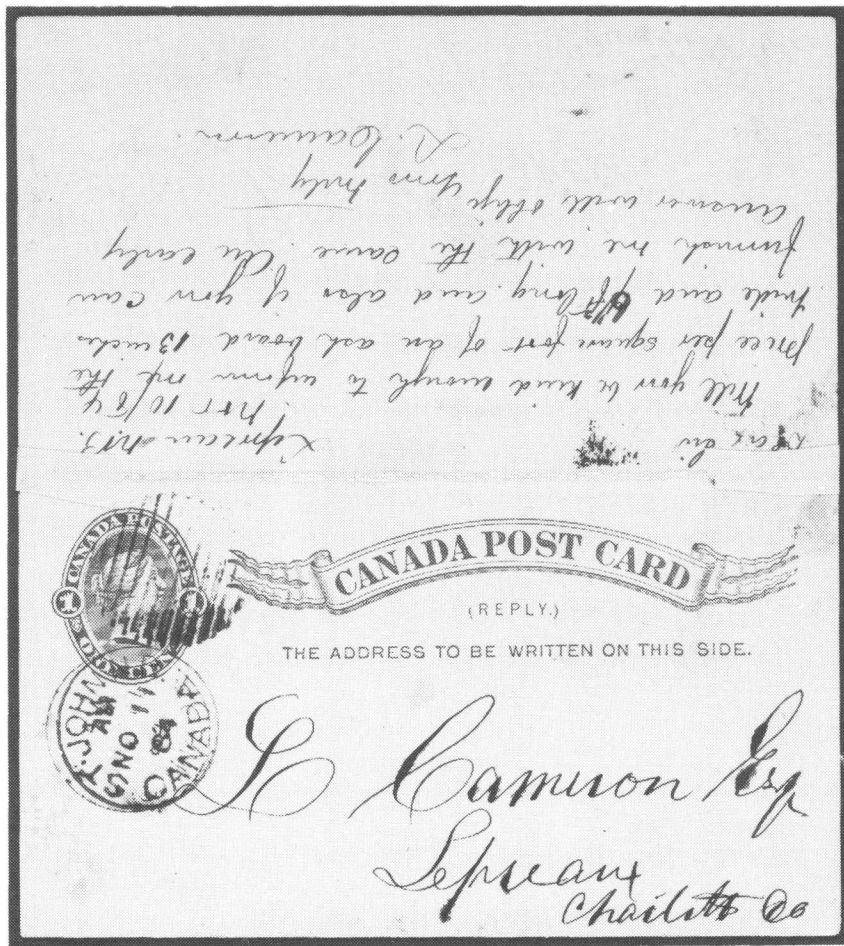 Lepreau N.B.
Nov 10/84
Dear Sir
Will you be kind enough to inform me the
price per square foot of an ash board 13 inches
wide and long and also if you can
furnish me with the same. An early
answer will oblige Yours truly
L. Cameron
CANADA POSTAGE
1 1
ONE CENT
CANADA POST CARD
(REPLY.)
THE ADDRESS TO BE WRITTEN ON THIS SIDE.
ST. JOHN
AM
11
NO
84
CANADA
L Cameron Esq
Lepreaux
Charlotte Co